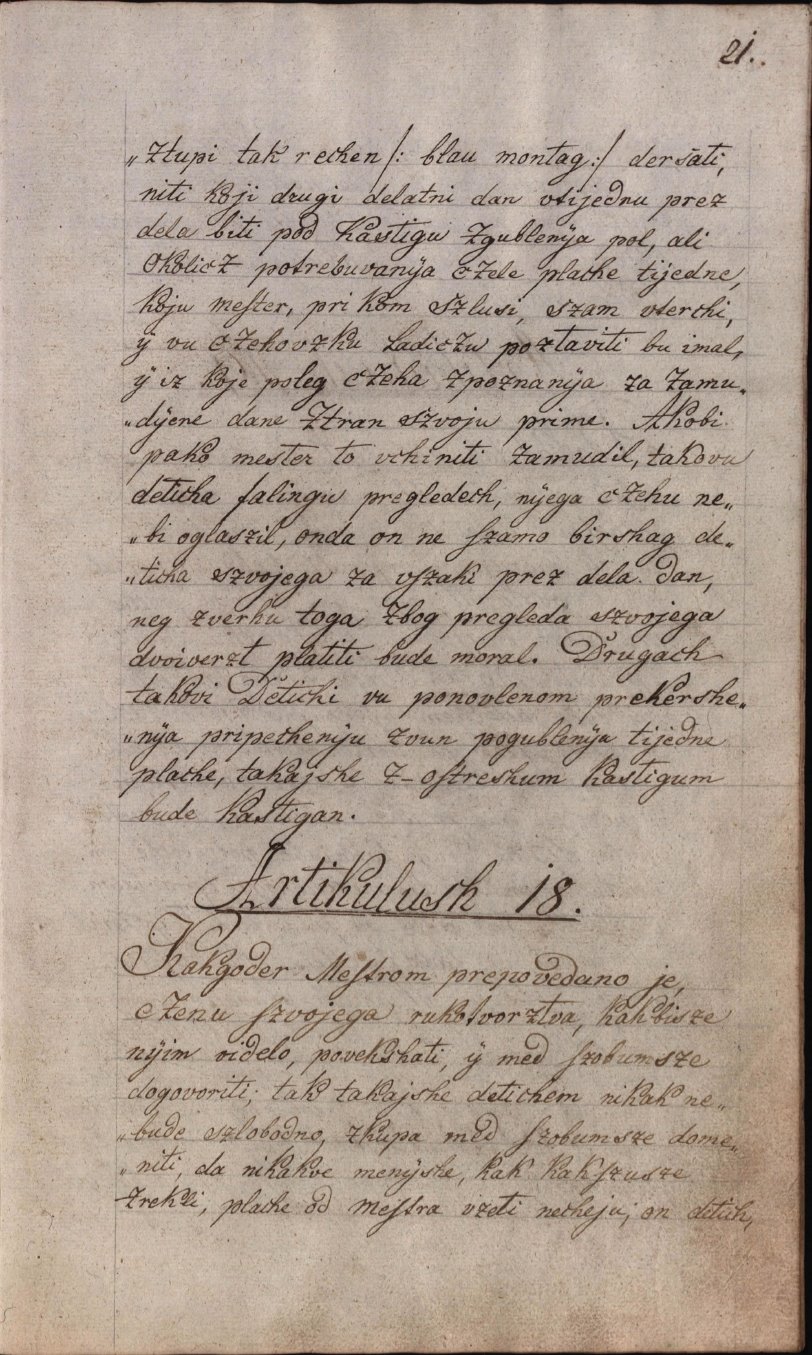 21.
„ztupi tak rechen /: blau montag :/ dersati,
niti koji drugi delatni dan vtijednu prez
dela biti pod Kastigu Zgublenya pol, ali
Okolicz potrebuvanya czele plache tijedne,
koju mester, pri kom szlusi, szam vterchi,
ÿ vu czehovzku Ladiczu poztaviti bu imal,
ÿ iz koje poleg czeha zpoznanya za zamu„
„dyene dane ztran szvoju prime. Akobi
pako mester to vchiniti zamudil, takovu
deticha falingu pregledech, nyega czehu ne„
„bi oglaszil, onda on ne szamo birshag de„
„ticha szvojega za vszaki prez dela dan,
neg zverhu toga zbog pregleda szvojega
dvoiverzt platiti bude moral. Drugach
takovi Detichi vu ponovlenom prekershe„
„nya pripecheniju zvun pogublenya tijedne
plache, takajshe z-ostreshum Kastigum
bude kastigan.
Artikulush 18.
Kakgoder Mestrom prepovedano je,
czenu szvojega rukotvorztva, kakbisze
nyim videlo, povekshati, ÿ med szobumsze
dogovoriti; tak takajshe detichem nikak ne„
„bude szlobodno, zkupa med szobumsze dome„
„niti, da nikakve menyshe, kak kakszusze
zrekli, plache od Mestra vzeti necheju; on detich,